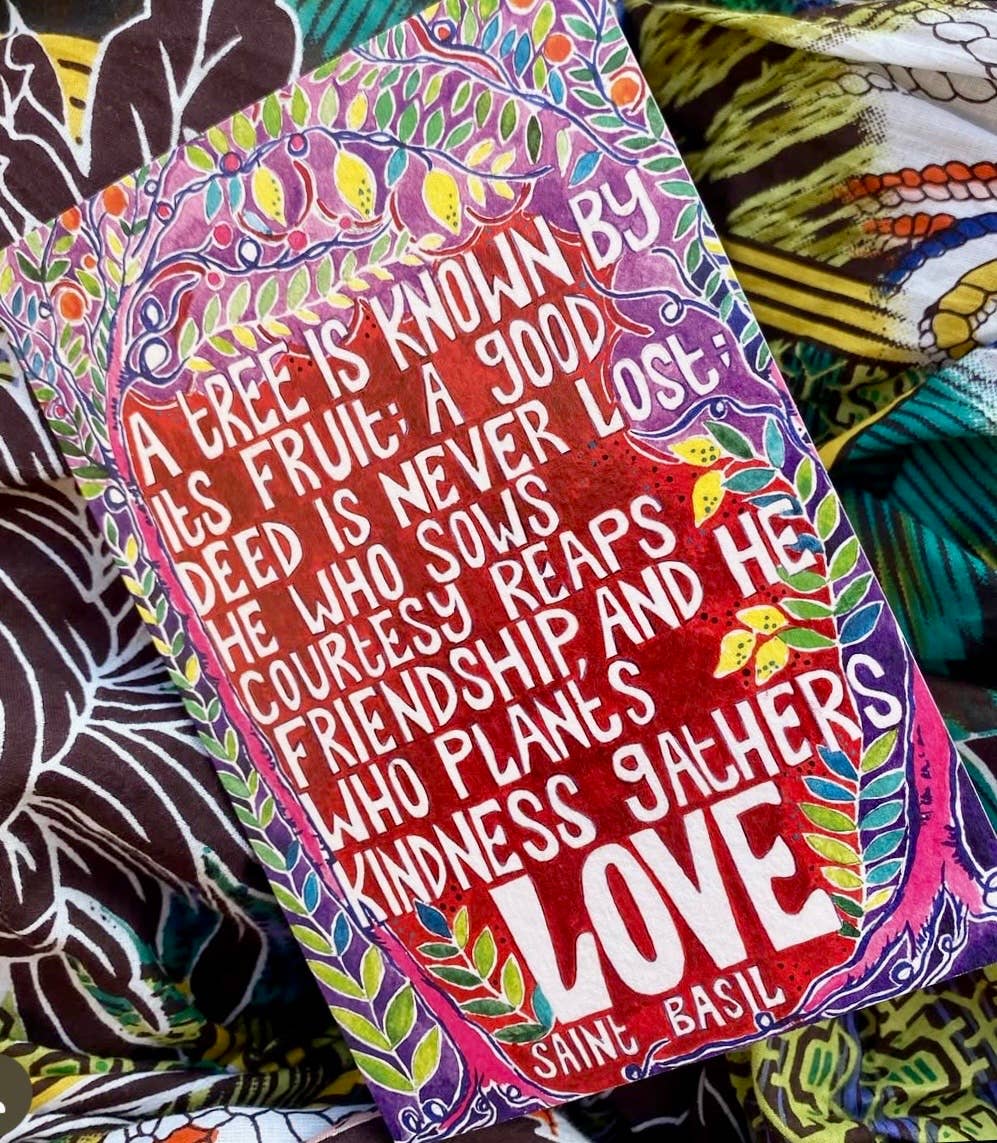 A tREE IS KNOWN BY
ItS FRUIt; A gOOD
DEED IS NEVER LOSt;
HE WHO SOWS
COURtESY REAPS
FRIENDSHIP, AND HE
WHO PLANtS
KINDNESS gAtHERS
LOVE
SAINt BASIL